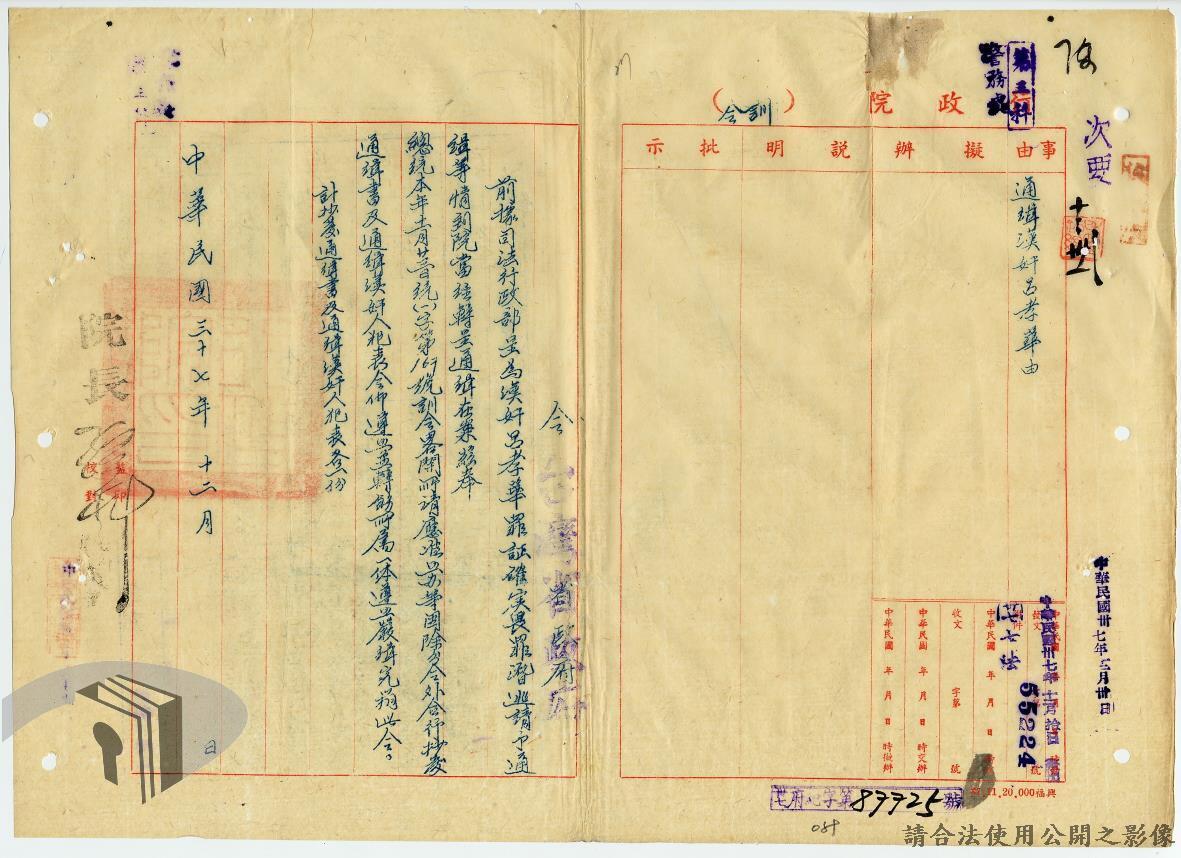 次要
警務處
第三科
行政院（訓令）
事由
擬辦
説明
批示
通緝漢奸呂孝華由
中華民國卅七年
中華民國卅七年
七法
55224
收文 字第 號
中華民國 年 月 日 時交辦
中華民國 年 月 日 時擬辦
與福20,000.11
字第87725號
089
令台灣省政府
前據司法行政部呈為漢奸呂孝華罪証確実畏罪潛逃請予通
緝等情到院當經轉呈通緝在案茲奉
總統本年十一月 統(一)字第169號訓令畧開所請應准照辦等因除分令外合行抄發
通緝書及通緝漢奸人犯表令仰遵照並轉飭所屬一体遵照嚴緝究辦此令。
計抄發通緝書及通緝漢奸人犯表各一份
中華民國三十七年十二月
日
院長
監印
校對
請合法使用公開之影像